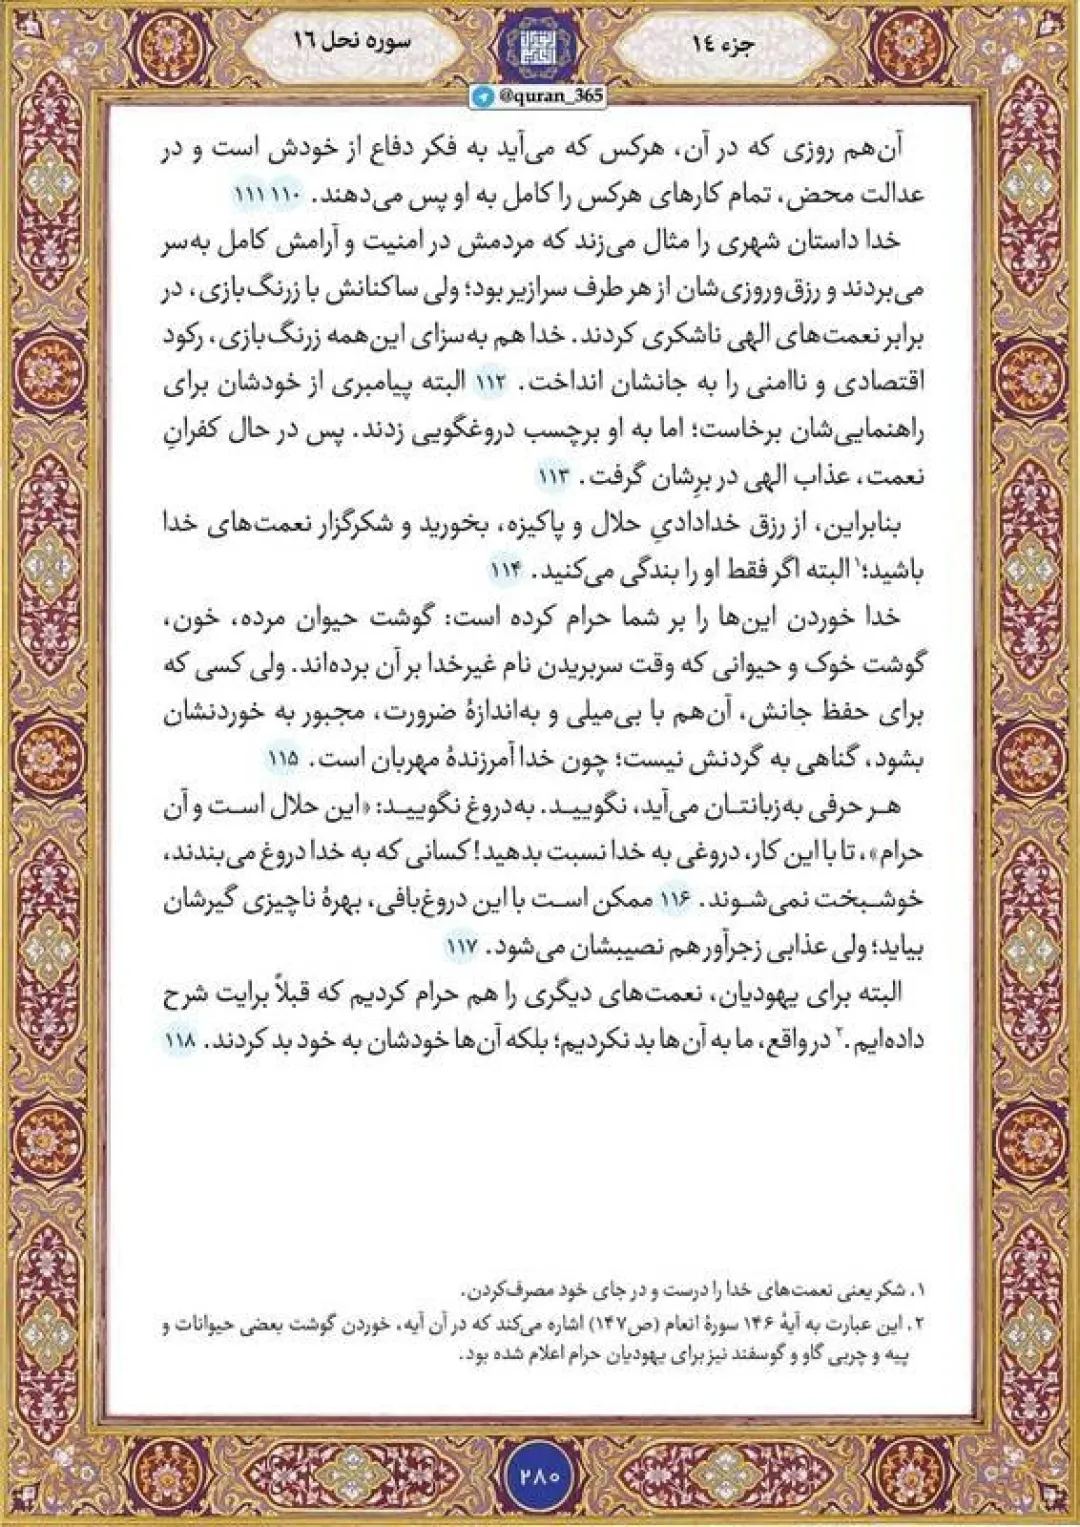 جزء ١٤
سوره نحل ١٦
@quran_365
آن‌هم روزی که در آن، هرکس که می‌آید به فکر دفاع از خودش است و در
عدالت محض، تمام کارهای هرکس را کامل به او پس می‌دهند. ۱۱۰ ۱۱۱
خدا داستان شهری را مثال می‌زند که مردمش در امنیت و آرامش کامل به‌سر
می‌بردند و رزق‌وروزی‌شان از هر طرف سرازیر بود؛ ولی ساکنانش با زرنگ‌بازی، در
برابر نعمت‌های الهی ناشکری کردند. خدا هم به‌سزای این‌همه زرنگ‌بازی، رکود
اقتصادی و ناامنی را به جانشان انداخت. ۱۱۲ البته پیامبری از خودشان برای
راهنمایی‌شان برخاست؛ اما به او برچسب دروغگویی زدند. پس در حال کفرانِ
نعمت، عذاب الهی در برِشان گرفت. ۱۱۳
بنابراین، از رزق خدادادیِ حلال و پاکیزه، بخورید و شکرگزار نعمت‌های خدا
باشید؛۱ البته اگر فقط او را بندگی می‌کنید. ۱۱۴
خدا خوردن این‌ها را بر شما حرام کرده است: گوشت حیوان مرده، خون،
گوشت خوک و حیوانی که وقت سربریدن نام غیرخدا بر آن برده‌اند. ولی کسی که
برای حفظ جانش، آن‌هم با بی‌میلی و به‌اندازهٔ ضرورت، مجبور به خوردنشان
بشود، گناهی به گردنش نیست؛ چون خدا آمرزندهٔ مهربان است. ۱۱۵
هر حرفی به‌زبانتان می‌آید، نگویید. به‌دروغ نگویید: «این حلال است و آن
حرام»، تا با این کار، دروغی به خدا نسبت بدهید! کسانی که به خدا دروغ می‌بندند،
خوشبخت نمی‌شوند. ۱۱۶ ممکن است با این دروغ‌بافی، بهرهٔ ناچیزی گیرشان
بیاید؛ ولی عذابی زجرآور هم نصیبشان می‌شود. ۱۱۷
البته برای یهودیان، نعمت‌های دیگری را هم حرام کردیم که قبلاً برایت شرح
داده‌ایم.۲ درواقع، ما به آن‌ها بد نکردیم؛ بلکه آن‌ها خودشان به خود بد کردند. ۱۱۸
۱. شکر یعنی نعمت‌های خدا را درست و در جای خود مصرف‌کردن.
۲. این عبارت به آیهٔ ۱۴۶ سورهٔ انعام (ص۱۴۷) اشاره می‌کند که در آن آیه، خوردن گوشت بعضی حیوانات و
پیه و چربی گاو و گوسفند نیز برای یهودیان حرام اعلام شده بود.
۲۸۰